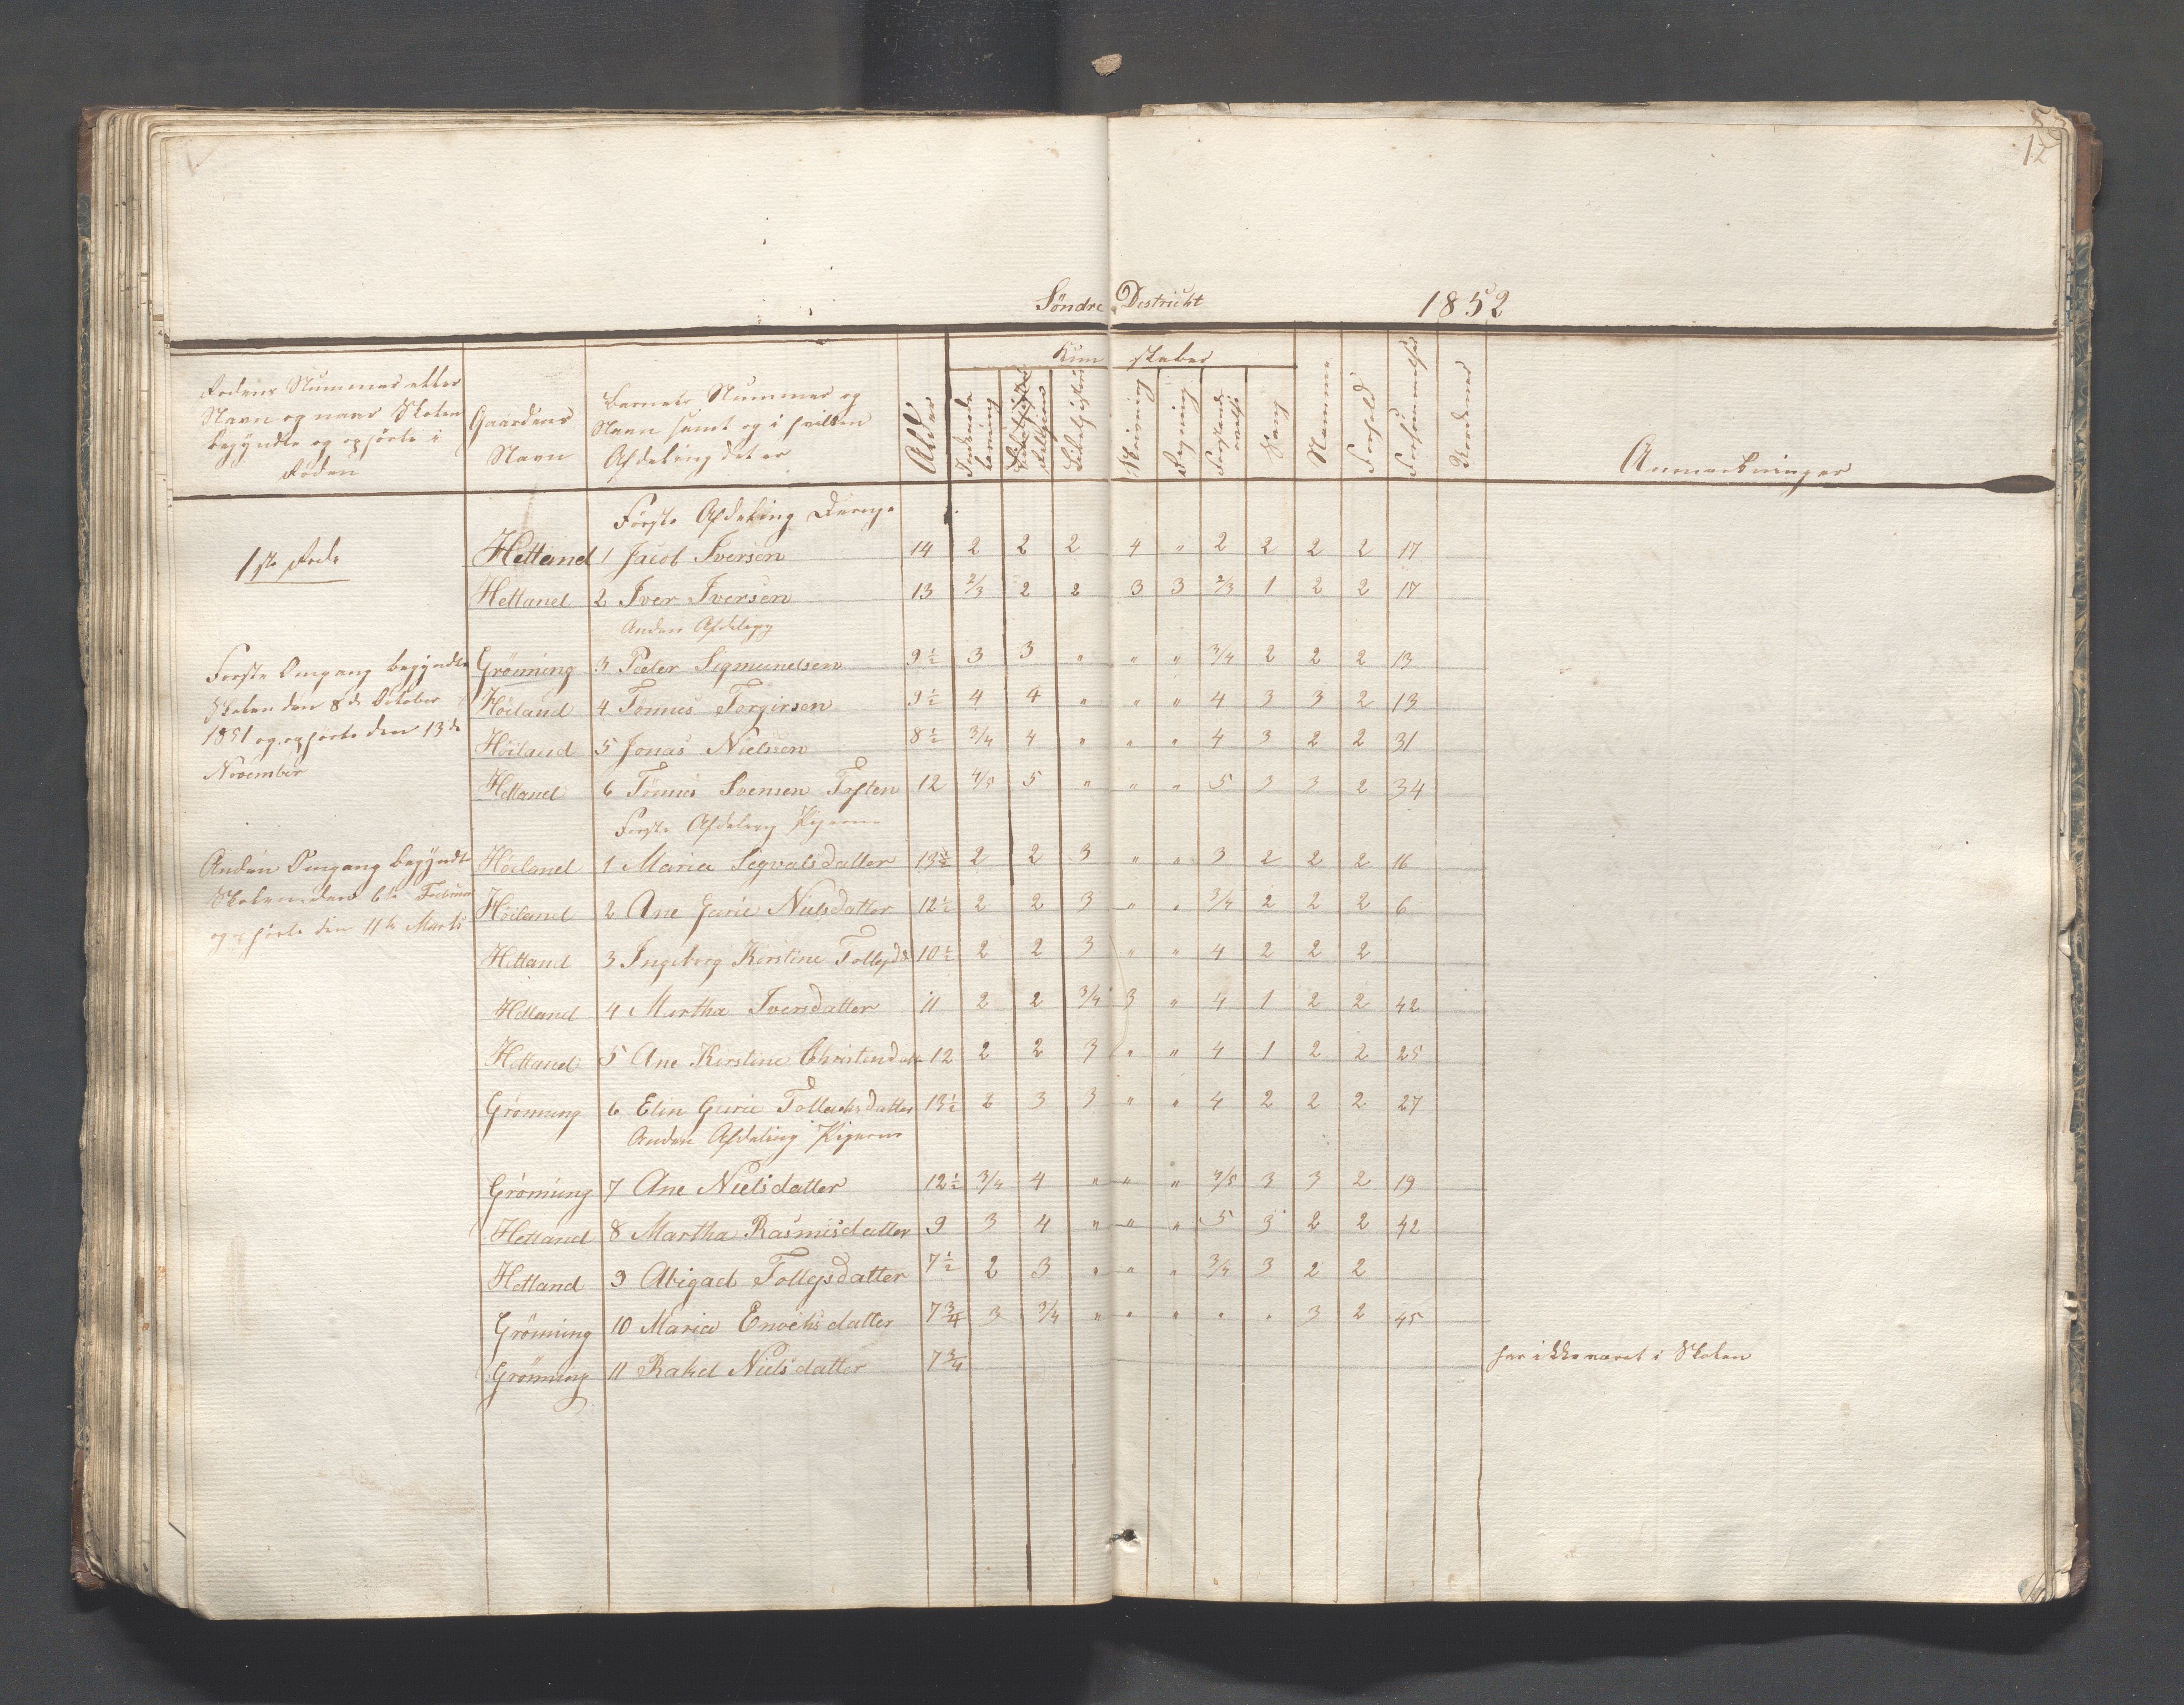 12
Söndre Destrickt 1852
Rodens Nummer eller
Navn og naar Skolen
begyndte og ophørte i
Roden
Gaardens
Navn
Barnets Nummer og
Navn samt og i hvilken
Afdeling det er
Alder
Kundskaber
Indenads
Læsning
Religion
Bibelhistorie
Skrivning
Regning
Forstands
øvelse
Sang
Nemme
Forhold
Forsømmelser
Anmærkninger
Første Afdeling Drenge
1ste Rode
Hetland 1 Jacob Iversen 14 2 2 2 4 " 2 2 2 2 17
Hetland 2 Iver Iversen 13 2/3 2 2 3 3 2/3 1 2 2 17
Anden Afdeling
Første Omgang begyndte
Skolen den 8de October
1851 og ophørte den 13de
November
Grönning 3 Peder Sigmundsen 9½ 3 3 " " " 3/4 2 2 2 13
Höiland 4 Tönnes Torgirsen 9½ 4 4 " " " 4 3 3 2 13
Höiland 5 Jonas Nielsen 8½ 3/4 4 " " " 4 3 2 2 31
Hetland 6 Tönnes Svensen Toften 12 4/5 5 " " " 5 3 3 2 34
Første Afdeling Pigerne
Anden Omgang begyndte
Skolen den 6te Februar
og ophørte den 11te Marts
Höiland 1 Maria Sigvalsdatter 13½ 2 2 3 " " 3 2 2 2 16
Höiland 2 Ane Gurie Nielsdatter 12½ 2 2 3 " " 3/4 2 2 2 6
Hetland 3 Ingeborg Kirstine Tollefsd 10½ 2 2 3 " " 4 2 2 2
Hetland 4 Martha Iversdatter 11 2 2 3/4 3 " 4 1 2 2 42
Hetland 5 Ane Kirstine Christensdatt 12 2 2 3 " " 4 1 2 2 25
Grönning 6 Elin Gurie Tollachsdatter 13½ 2 3 3 " " 4 2 2 2 27
Anden Afdeling Pigerne
Grönning 7 Ane Nielsdatter 12½ 3/4 4 " " " 4/5 3 3 2 19
Hetland 8 Martha Rasmusdatter 9 3 4 " " " 5 3 2 2 42
Hetland 9 Abigael Tollefsdatter 7½ 2 3 " " " 3/4 3 2 2
Grönning 10 Maria Enochsdatter 7¾ 3 3/4 " " " " " 3 2 45
Grönning 11 Rakel Nielsdatter 7¾ har ikke været i Skolen